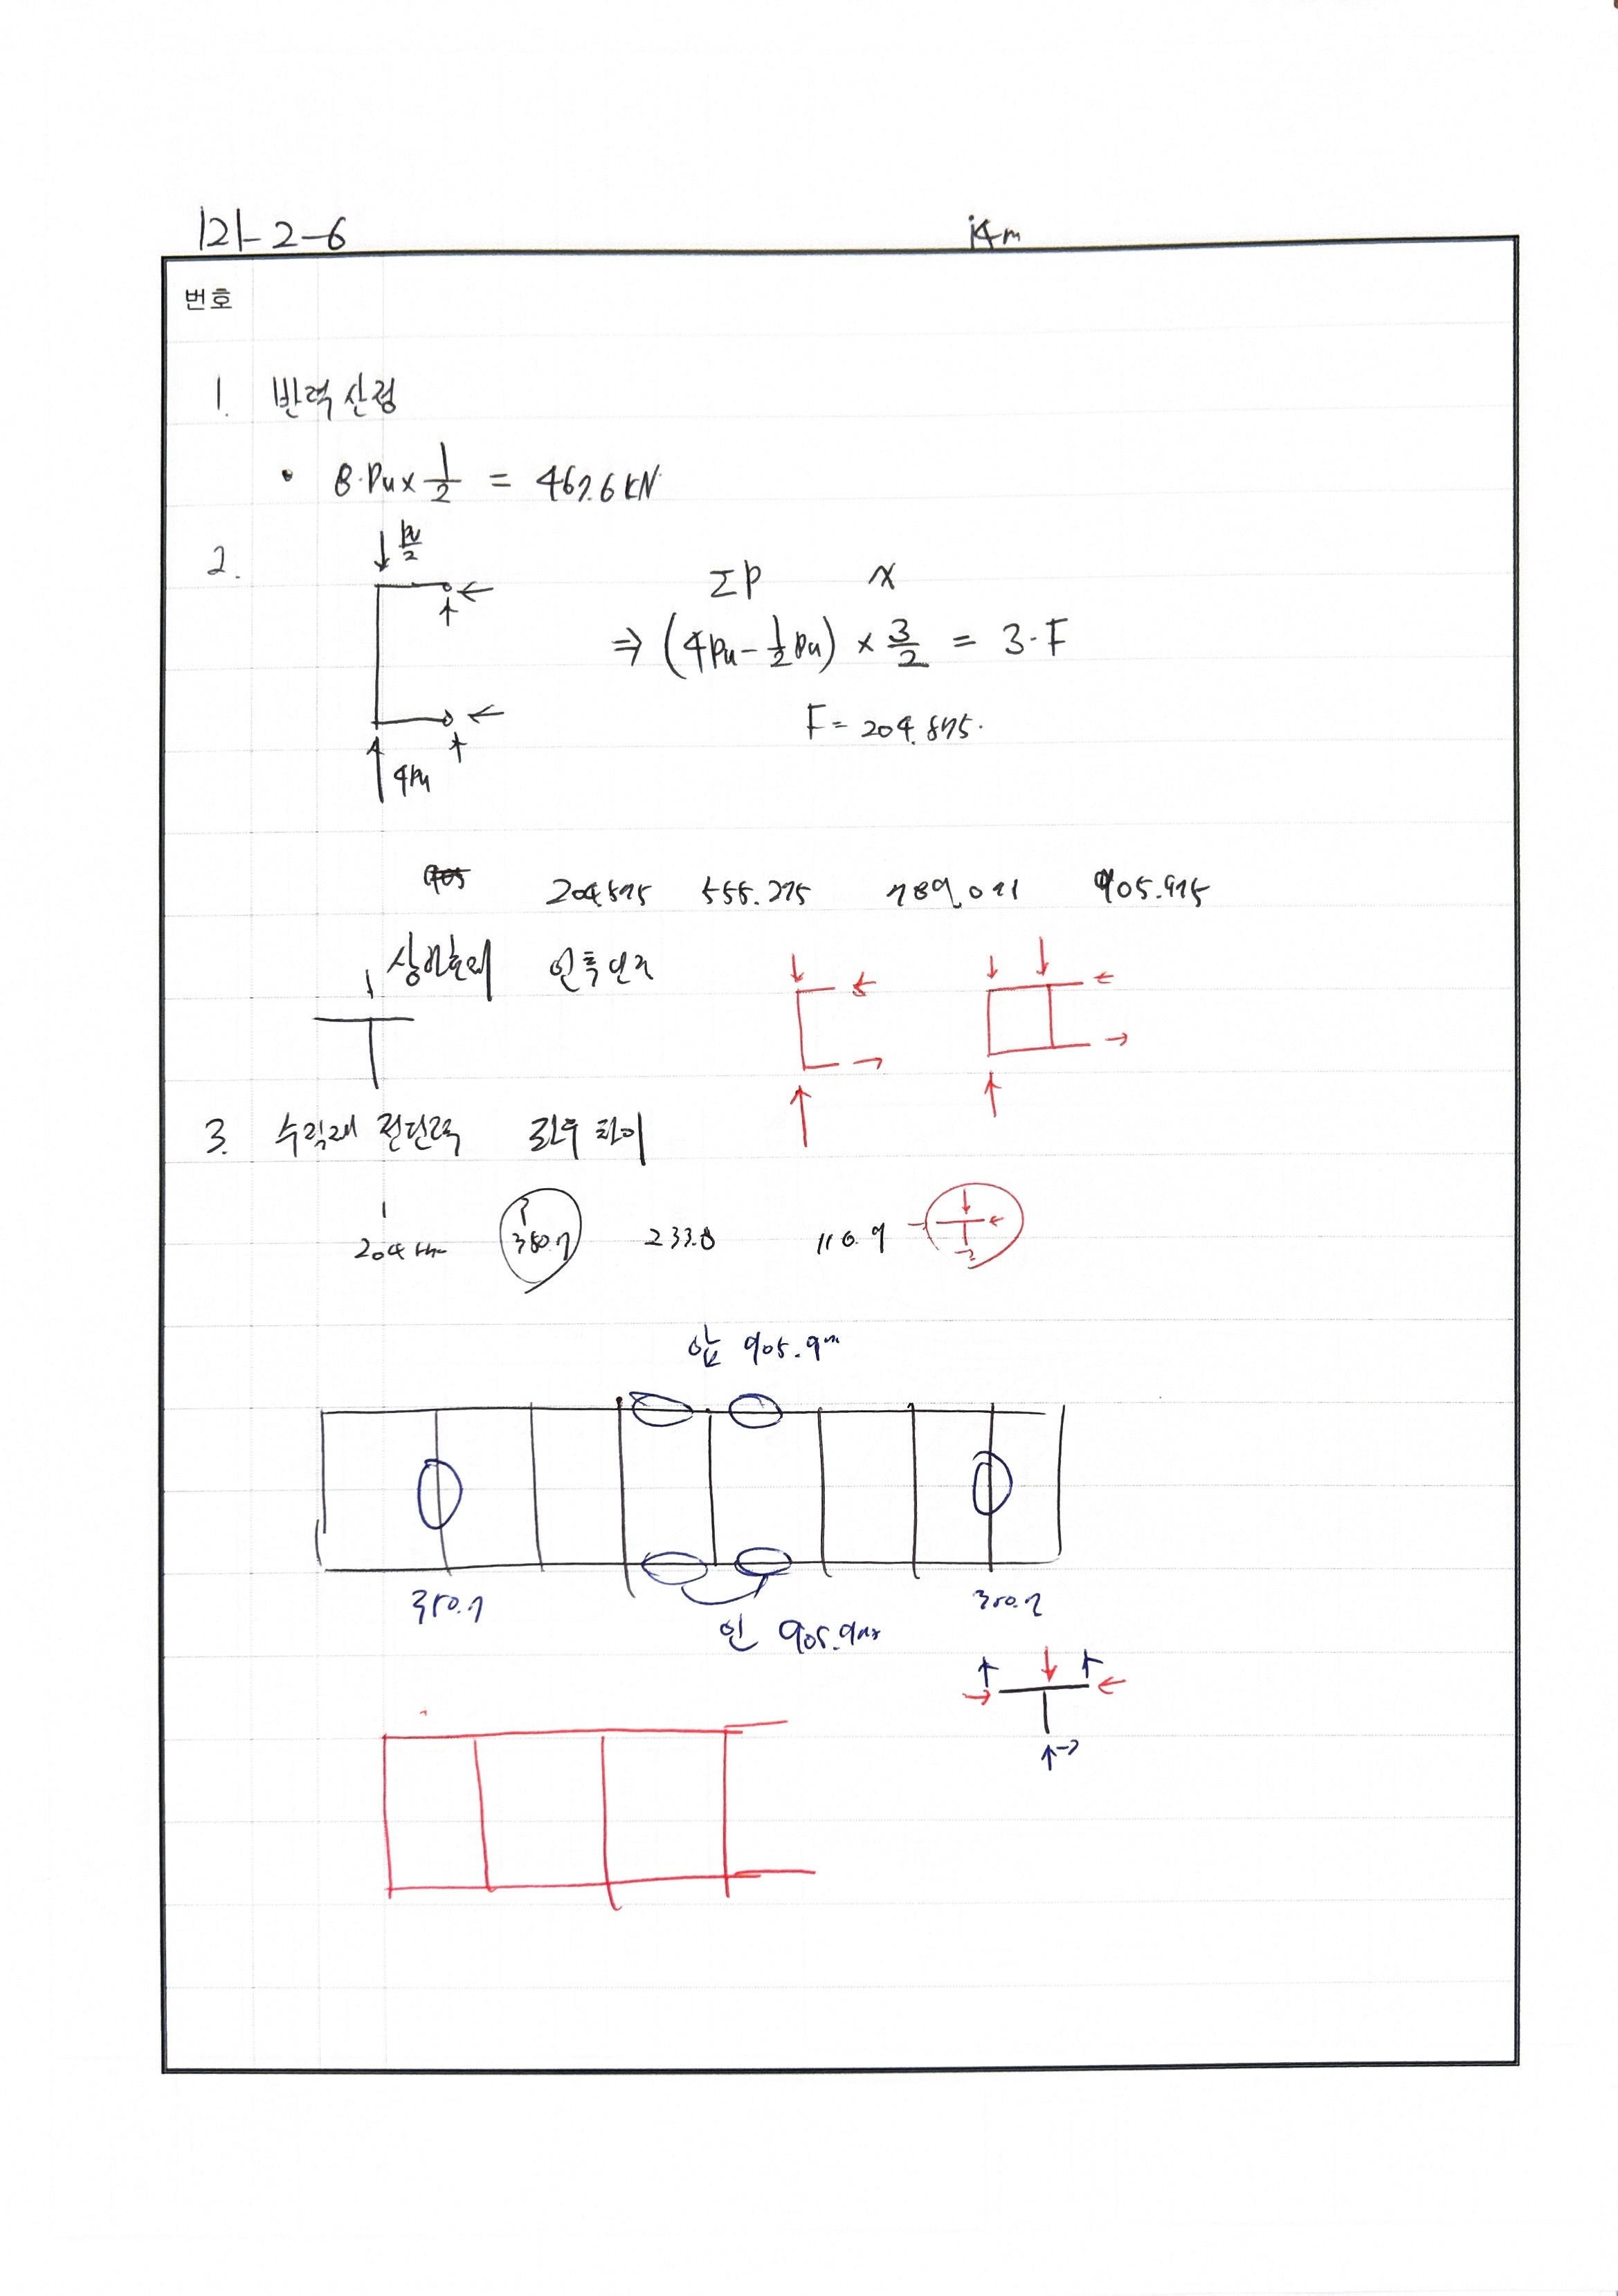 121-2-6
14m
번호
1. 반력산정
• 8·Pu×1/2 = 467.6 kN
2. Pu/2
ΣP x
⇒ (4Pu-1/2Pu) × 3/2 = 3·F
F= 204.575.
4Pu
204.575 555.275 789.071 905.975
상하현재 인축단재
3. 수직재 전단력 좌우 차이
204 350.7 233.8 116.9
압 905.9
350.7 350.7
인 905.9